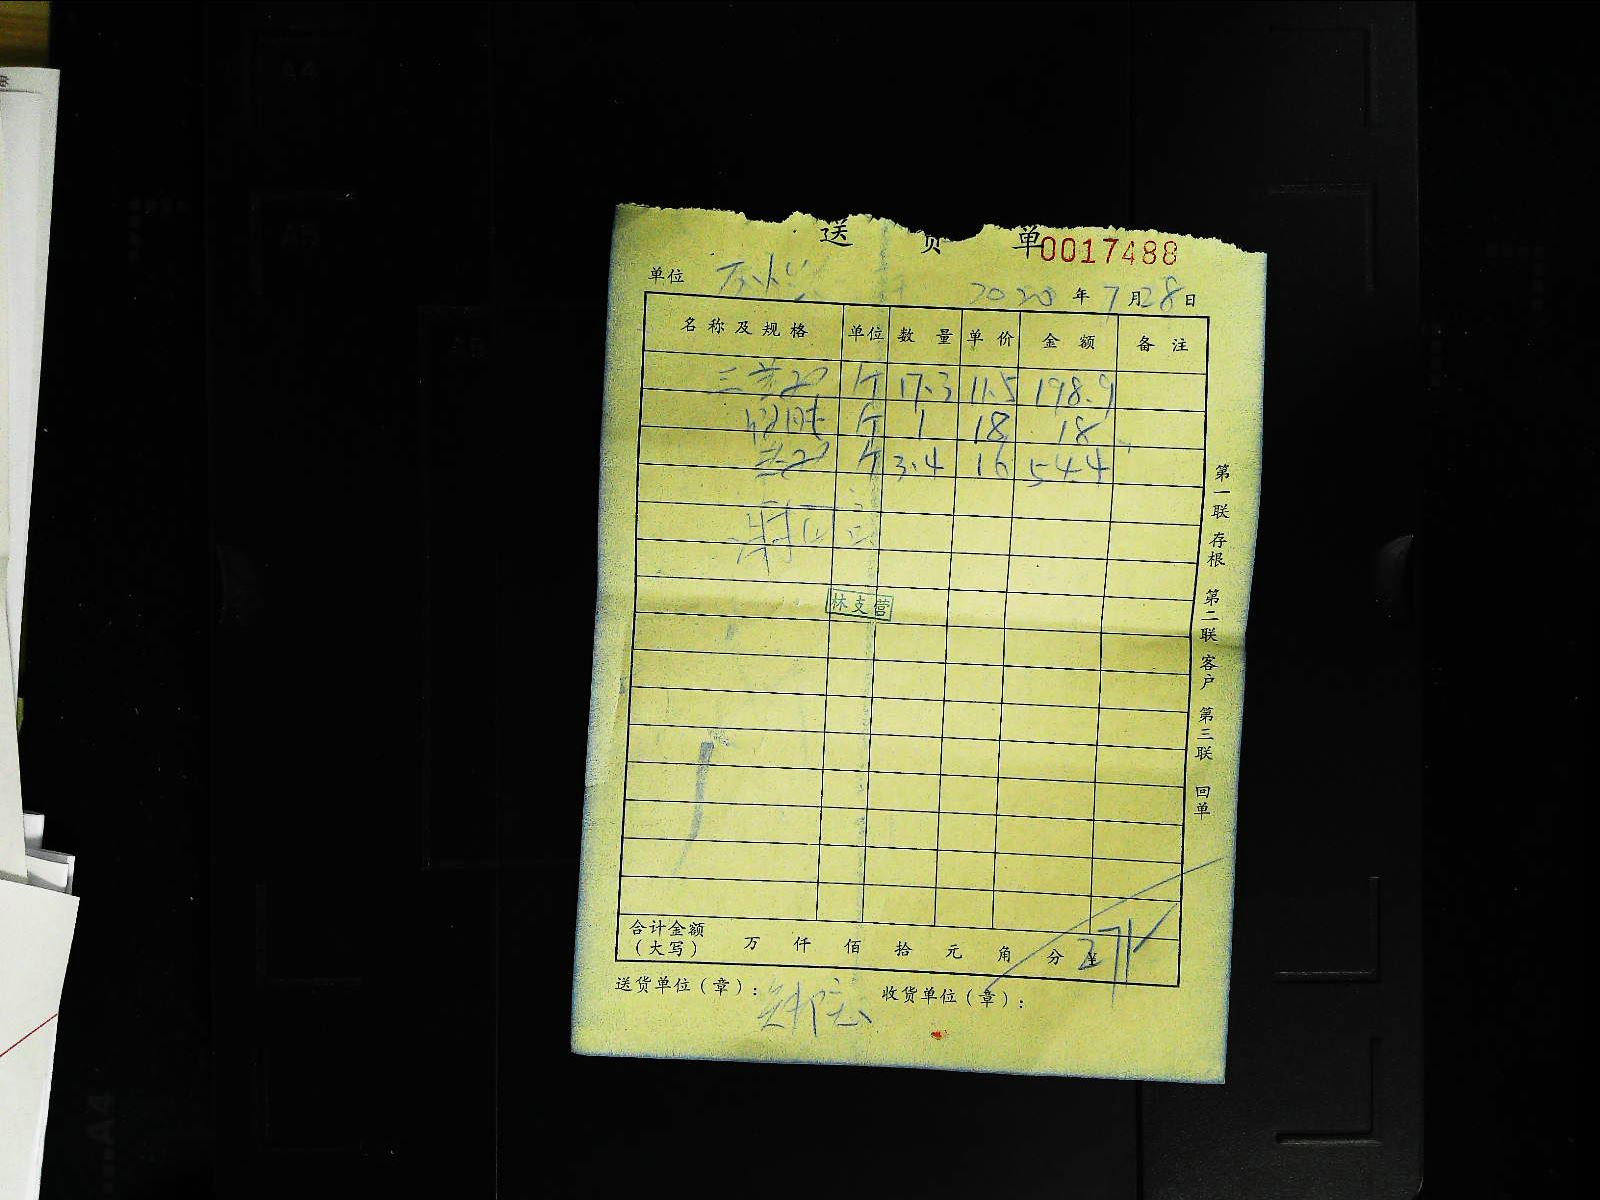 送 货 单 0017488
单位 2020 年 7 月 28 日
名称及规格 单位 数量 单价 金额 备注
斤 17.3 11.5 198.9
斤 1 18 18
斤 3.4 16 54.4
林支营
合计金额
(大写) 万 仟 佰 拾 元 角 分 ¥ 271
送货单位(章): 收货单位(章):
第一联 存根 第二联 客户 第三联 回单